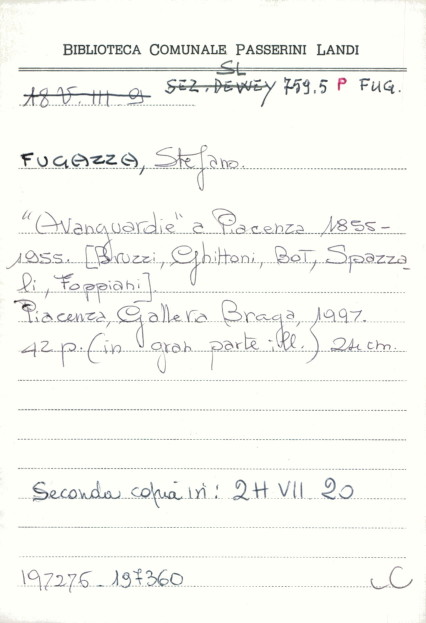 BIBLIOTECA COMUNALE PASSERINI LANDI
SL
18 V. III 9 SEZ. DEWEY 759.5 P FUG.
FUGAZZA, Stefano.
"Avanguardie" a Piacenza 1855-
1955. [Bruzzi, Ghittoni, BOT, Spazza-
li, Foppiani].
Piacenza, Galleria Braga, 1997.
42 p. (in gran parte ill.) 24 cm.
Seconda copia in: 2H VII 20
197276 - 197360
C